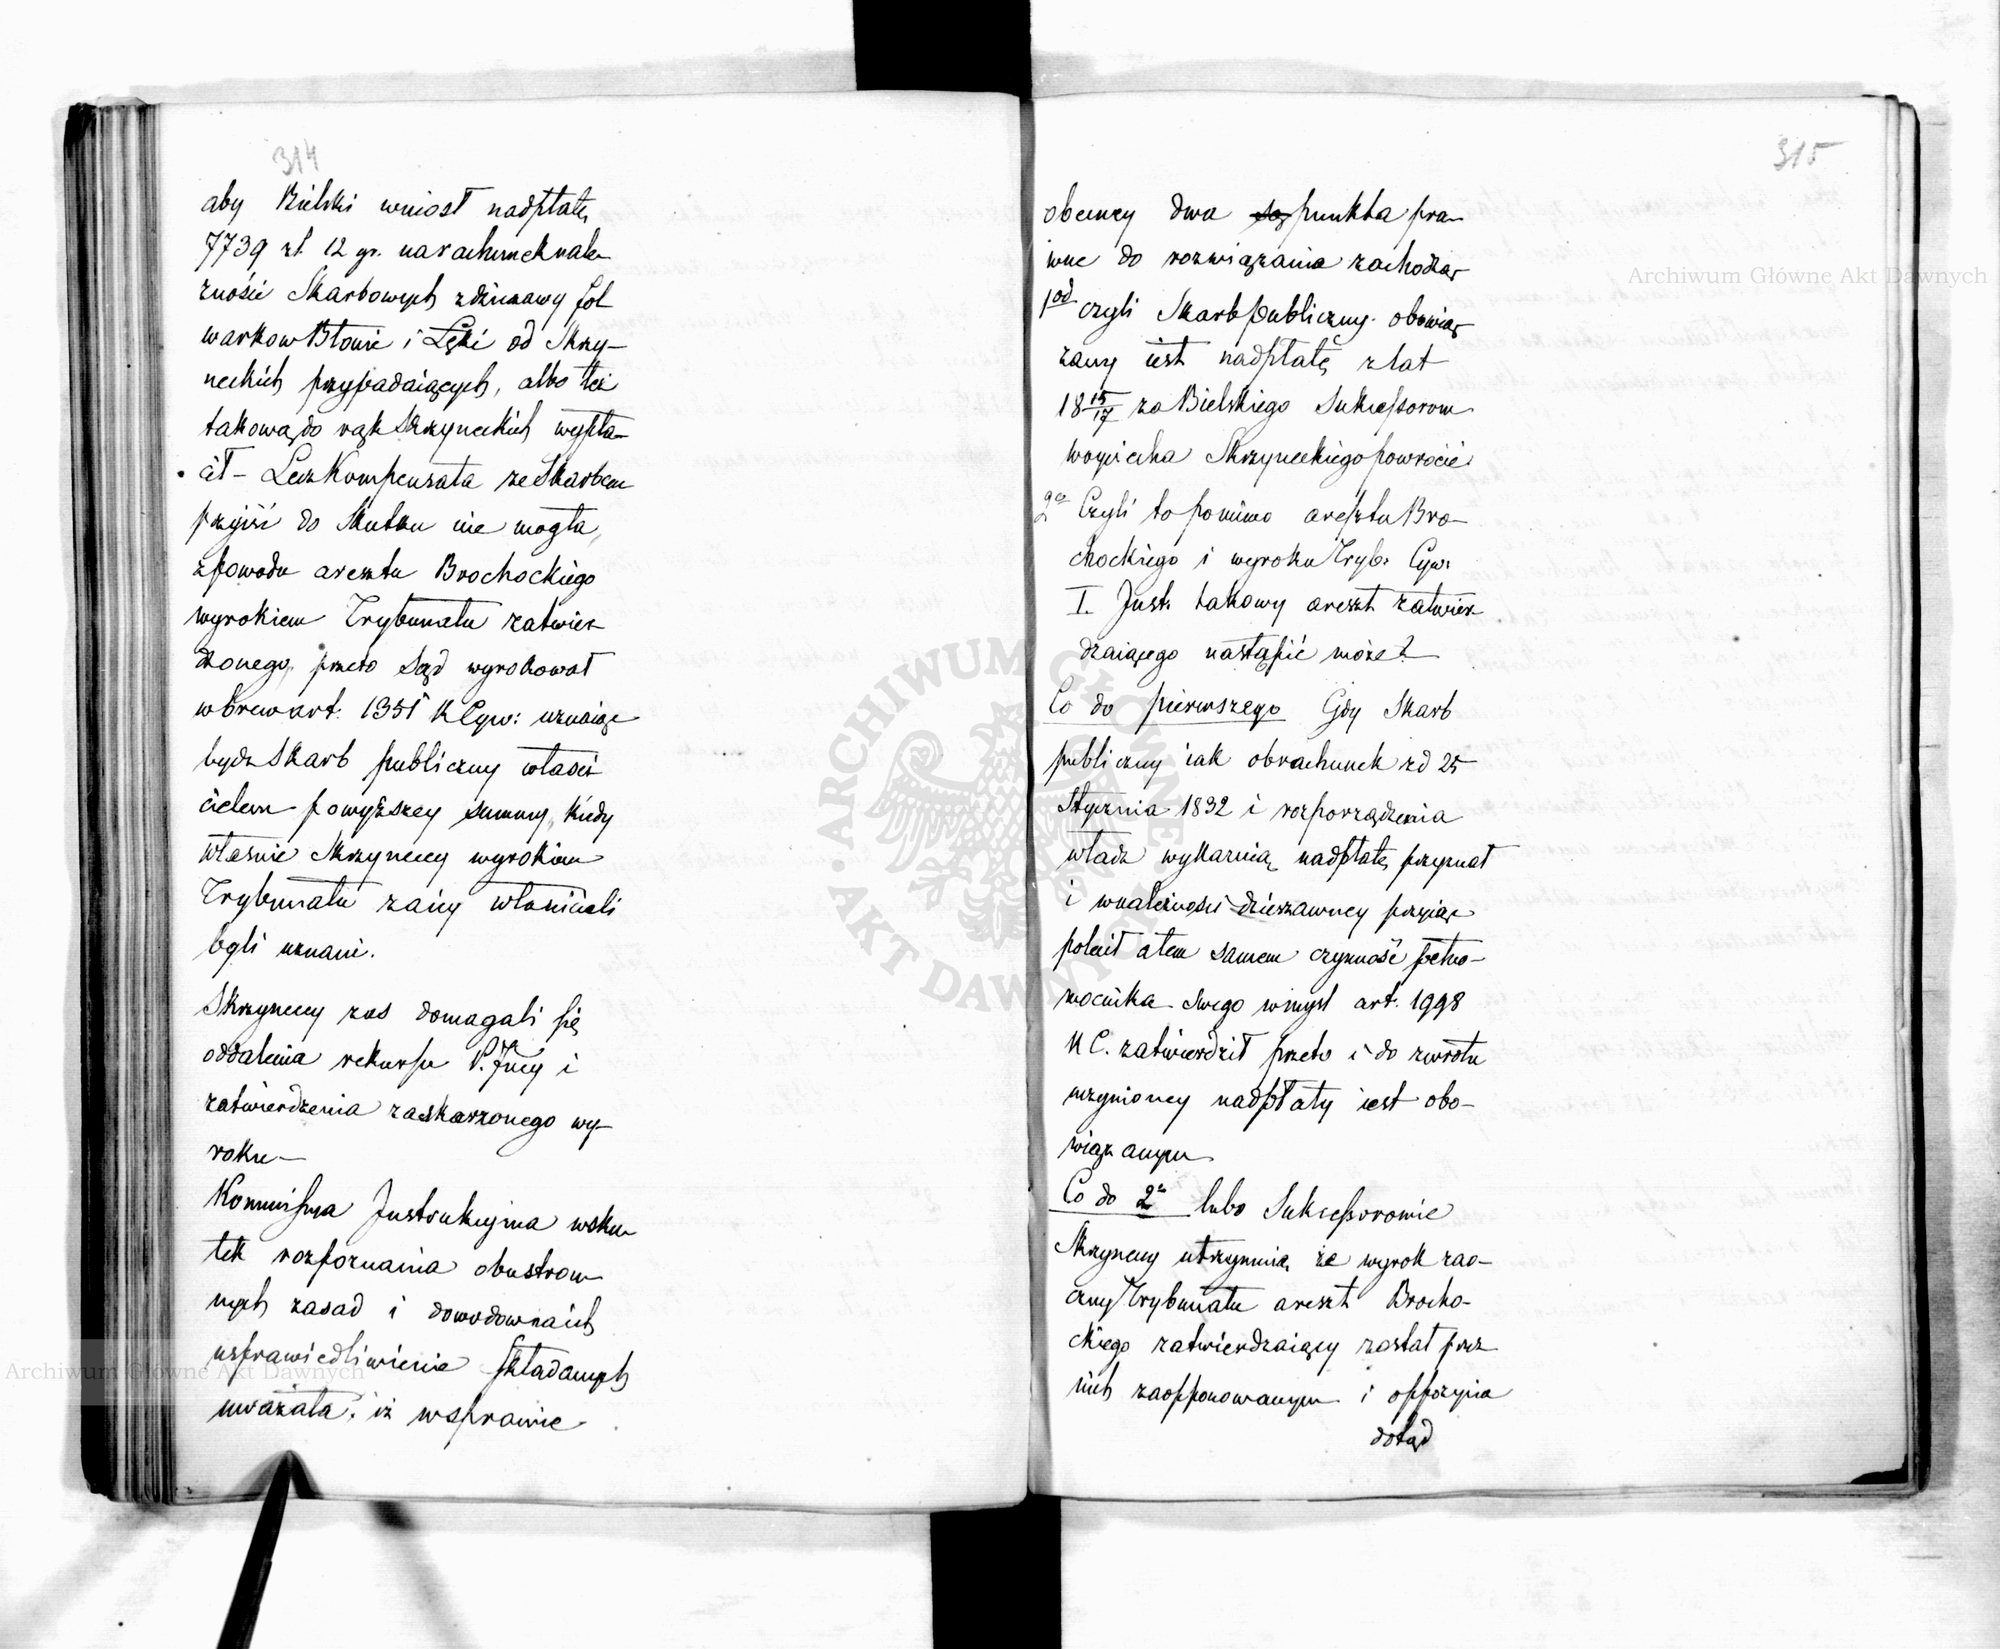 314
aby Bielski wniosł nadpłatę
7739 zł. 12 gr. na rachunek nale-
zności Skarbowych z dzierzawy fol
warkow Błonie i Łęki od Skrzy-
neckich przypadaiących, albo też
takową do rąk Skrzyneckich wypła-
cił – Lecz Kompensata ze Skarbem
przyiść do Skutku nie mogła,
z powodu aresztu Brochockiego
wyrokiem Trybunału zatwier-
dzonego, przeto Sąd wyrokował
wbrew art. 1351 K Cyw: uznaiąc
bydz Skarb publiczny właści
cielem powyższey summy, kiedy
własnie Skrzyneccy wyrokiem
Trybunału za iey właścicieli
byli uznani.
Skrzyneccy zas domagali się
oddalenia rekursu P. Jney i
zatwierdzenia zaskarzonego wy-
roku –
Kommissya Instrukcyina wsku-
tek rozpoznania obustron-
nych zasad i dowodow na ich
usprawiedliwienie składanych
uważała, iż w sprawie
315
obecney dwa są punkta pra-
wne do rozwiązania zachodzą
1od czyli Skarb publiczny obowią
zany iest nadpłatę z lat
18 15/17 za Bielskiego Sukcessorom
Woyciecha Skrzyneckiego powrócić
2o Czyli to pomimo aresztu Bro-
chockiego i wyroku Tryb: Cyw:
I. Inst. takowy areszt zatwier-
dzaiącego nastąpić może?
Co do pierwszego Gdy Skarb
publiczny iak obrachunek z d 25
Stycznia 1832 i rozporządzenia
władz wykaznią nadpłatę przyznał
i w należności dzierzawney przyiąć
polecił a tem samem czynność pełno-
mocnika swego w myśl art. 1998
K C. zatwierdził przeto i do zwrotu
uczynioney nadpłaty iest obo-
wiązanym
Co do 2o lubo Sukcessorowie
Skrzyneccy utrzymuią, że wyrok zao-
czny Trybunału areszt Brocho-
ckiego zatwierdzaiący został prze
nich zaopponowanym i oppozycia
dotąd
Archiwum Główne Akt Dawnych
Archiwum Główne Akt Dawnych
ARCHIWUM GŁÓWNE AKT DAWNYCH